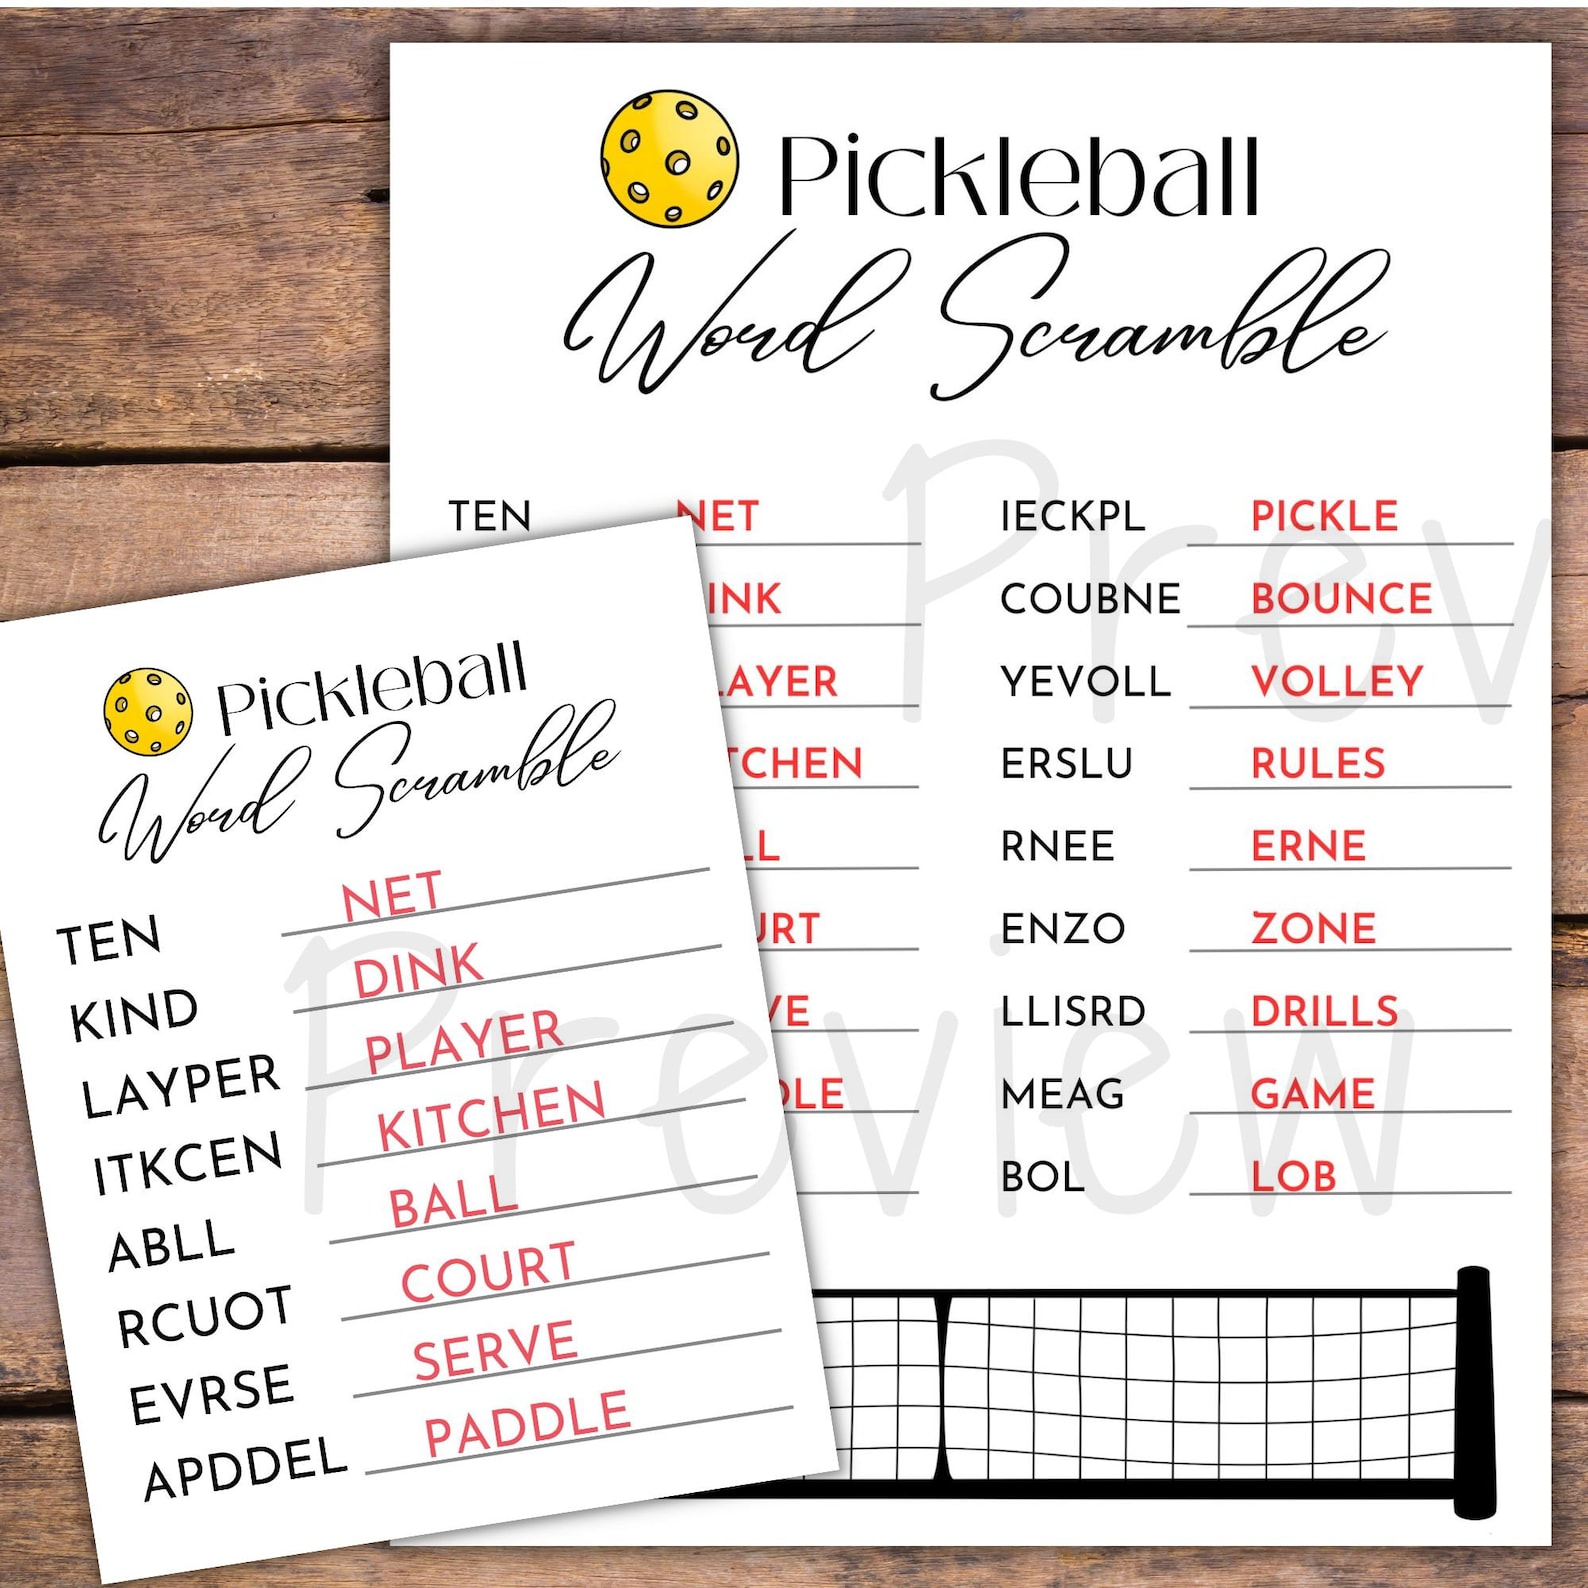 Pickleball
Word Scramble
TEN NET IECKPL PICKLE
INK COUBNE BOUNCE
LAYER YEVOLL VOLLEY
TCHEN ERSLU RULES
LL RNEE ERNE
URT ENZO ZONE
VE LLISRD DRILLS
DLE MEAG GAME
BOL LOB
Pickleball
Word Scramble
TEN NET
KIND DINK
LAYPER PLAYER
ITKCEN KITCHEN
ABLL BALL
RCUOT COURT
EVRSE SERVE
APDDEL PADDLE
Prev
Preview